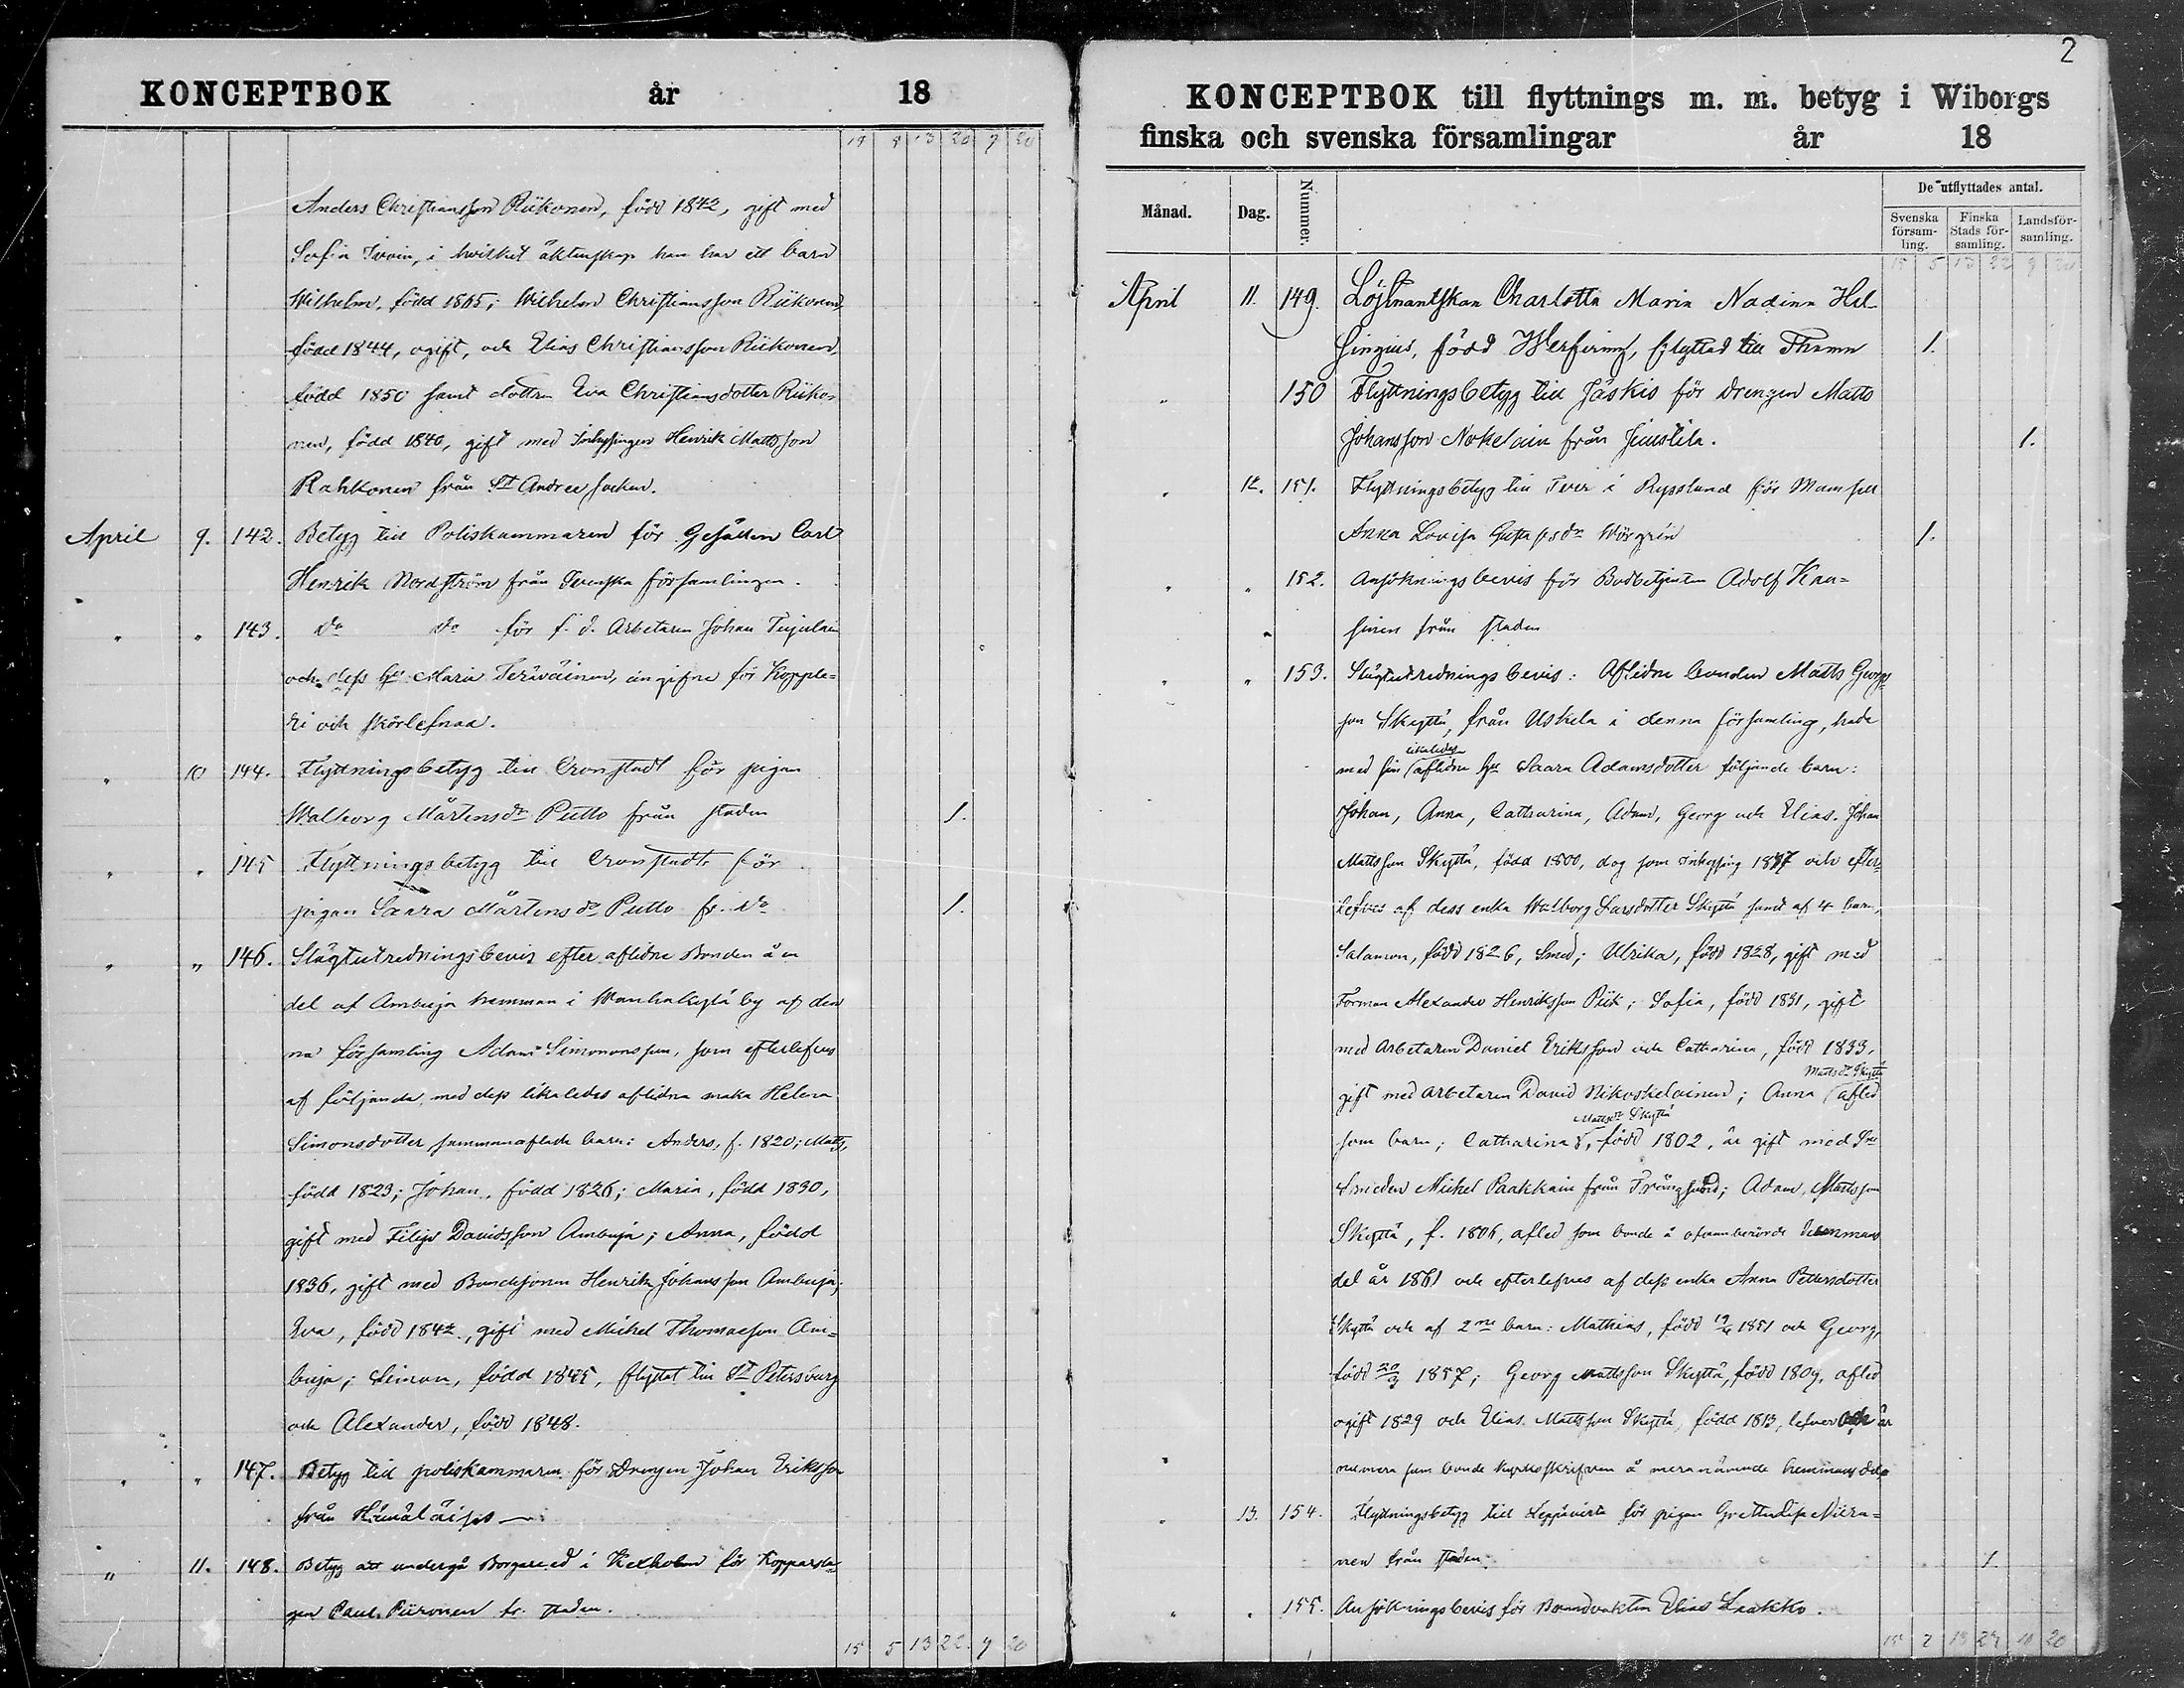 KONCEPTBOK år 18
19 8 13 20 9 20
Anders Christiansson Riikonen, född 1842, gift med
Sofia Iivoin, i hvilket äktenskap han har ett barn
Wilhelm, född 1865; Wilhelm Christiansson Riikonen,
född 1844, ogift, och Elias Christiansson Riikonen,
född 1850 samt dottren Eva Christiansdotter Riiko-
nen, född 1840, gift med Inhysingen Henrik Mattsson
Rahkonen från St Andree socken.
April 9. 142. Betyg till Poliskammaren för Gesällen Carl
Henrik Nordström från Svenska församlingen.
" " 143. do do för f. d. Arbetaren Johan Tujulain
och dess hu Maria Terwäinen, angifne för Kopple-
ri och skörlefnad.
" 10 144. Flyttningsbetyg till Cronstadt för pigan
Walborg Mårtensdr Putto från staden 1.
" " 145 Flyttningsbetyg till Cronstadt för
pigan Saara Mårtensdr Putto fr. do 1.
" " 146. Slägtutredningsbevis efter aflidne Bonden å en
del af Ambuja hemman i Wanhakylä by af den
na församling Adam Simonsson, som efterlefves
af följande, med dess likaledes aflidna maka Helena
Simonsdotter sammanaflade barn: Anders, f. 1820; Matts,
född 1823; Johan, född 1826; Maria, född 1830,
gift med Filip Davidsson Ambuja; Anna, född
1836, gift med Bondesonen Henrik Johansson Ambuja;
Eva, född 1842, gift med Michel Thomasson Am-
buja; Simon, född 1845, flyttat till St Petersburg
och Alexander, född 1848.
" " 147. Betyg till poliskammaren för Drengen Johan Eriksson
från Hämäläis
" 11. 148. Betyg att undergå Borgareed i Kexholm för Kopparsla-
gen Paul Piironen fr. staden.
15 5 13 22 9 20
2
KONCEPTBOK till flyttnings m. m. betyg i Wiborgs
finska och svenska församlingar år 18
Månad. Dag. Nummer. De utflyttades antal.
Svenska försam-ling. Finska Stads för-samling. Landsför-samling.
15 5 13 22 9 20
April 11. 149. Löjtnantskan Charlotta Maria Nadina Hel-
singius, född , flyttad till 1.
" 150 Flyttningsbetyg till Jäskis för drengen Matts
Johansson Nokelain från Juustila. 1.
" 12. 151. Flyttningsbetyg till Tver i Ryssland för Mamsell
Anna Lovisa Gustafsdr Wörgrén 1.
" " 152. Ansökningsbevis för Bodbetjenten Adolf Kau-
sinen från staden
" " 153. Slägtutredningsbevis: Aflidne bonden Matts Georgs
son Skyttä, från Uskela i denna församling, hade
likaledes
med sin aflidne hu Saara Adamsdotter följande barn:
Johan, Anna, Catharina, Adam, Georg och Elias. Johan
Mattsson Skyttä, född 1800, dog som inhysing 1847 och efter-
lefves af dess enka Walborg Larsdotter Skyttä samt af 4 barn,
Salamon, född 1826, Smed; Ulrika, född 1828, gift med
Forman Alexander Henriksson Piik; Sofia, född 1831, gift
med Arbetaren Daniel Eriksson och Catharina, född 1833,
Mattsdr Skyttä
gift med arbetaren David Nikoskelainen; Anna afled
Mattsdr Skyttä
som barn; Catharina, född 1802, är gift med
Smeden Michel Paakkain från Trångsund; Adam Mattsson
Skyttä, f. 1806, afled som bonde å ofvanberörde hemmans
del år 1861 och efterlefves af dess enka Anna Pettersdotter
Skyttä och af 2ne barn: Mathias, född 1851 och Georg,
född 1857; Georg Mattsson Skyttä, född 1809, afled
ogift 1829 och Elias Mattsson Skyttä, född 1813, lefver och är
numera som bonde kyrkoskrifven å meranämnde hemmansdel
" 13. 154. Flyttningsbetyg till Leppävirta för pigan Greta Lisa Niira-
nen från staden. 1.
" " 155. Ansökningsbevis för Brandvakten Elias Laakko.
15 7 13 23 10 20